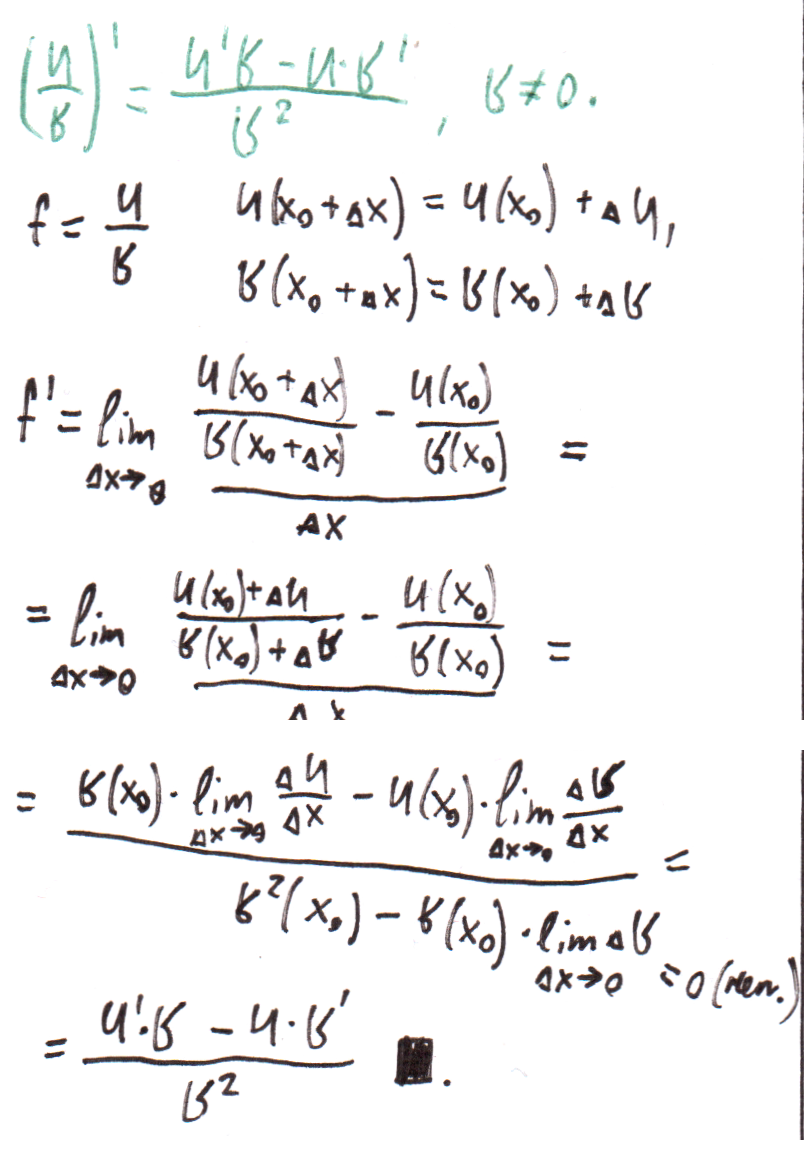 (u/v)' = (u'v - u·v')/v², v ≠ 0.
f = u/v u(x₀ + Δx) = u(x₀) + Δu,
v(x₀ + Δx) = v(x₀) + Δv
f' = lim_{Δx→0} (u(x₀ + Δx)/v(x₀ + Δx) - u(x₀)/v(x₀))/Δx =
= lim_{Δx→0} ((u(x₀) + Δu)/(v(x₀) + Δv) - u(x₀)/v(x₀))/Δx =
= (v(x₀)·lim_{Δx→0} Δu/Δx - u(x₀)·lim_{Δx→0} Δv/Δx)/(v²(x₀) - v(x₀)·lim_{Δx→0} Δv) =
= 0 (
= (u'·v - u·v')/v² ■.